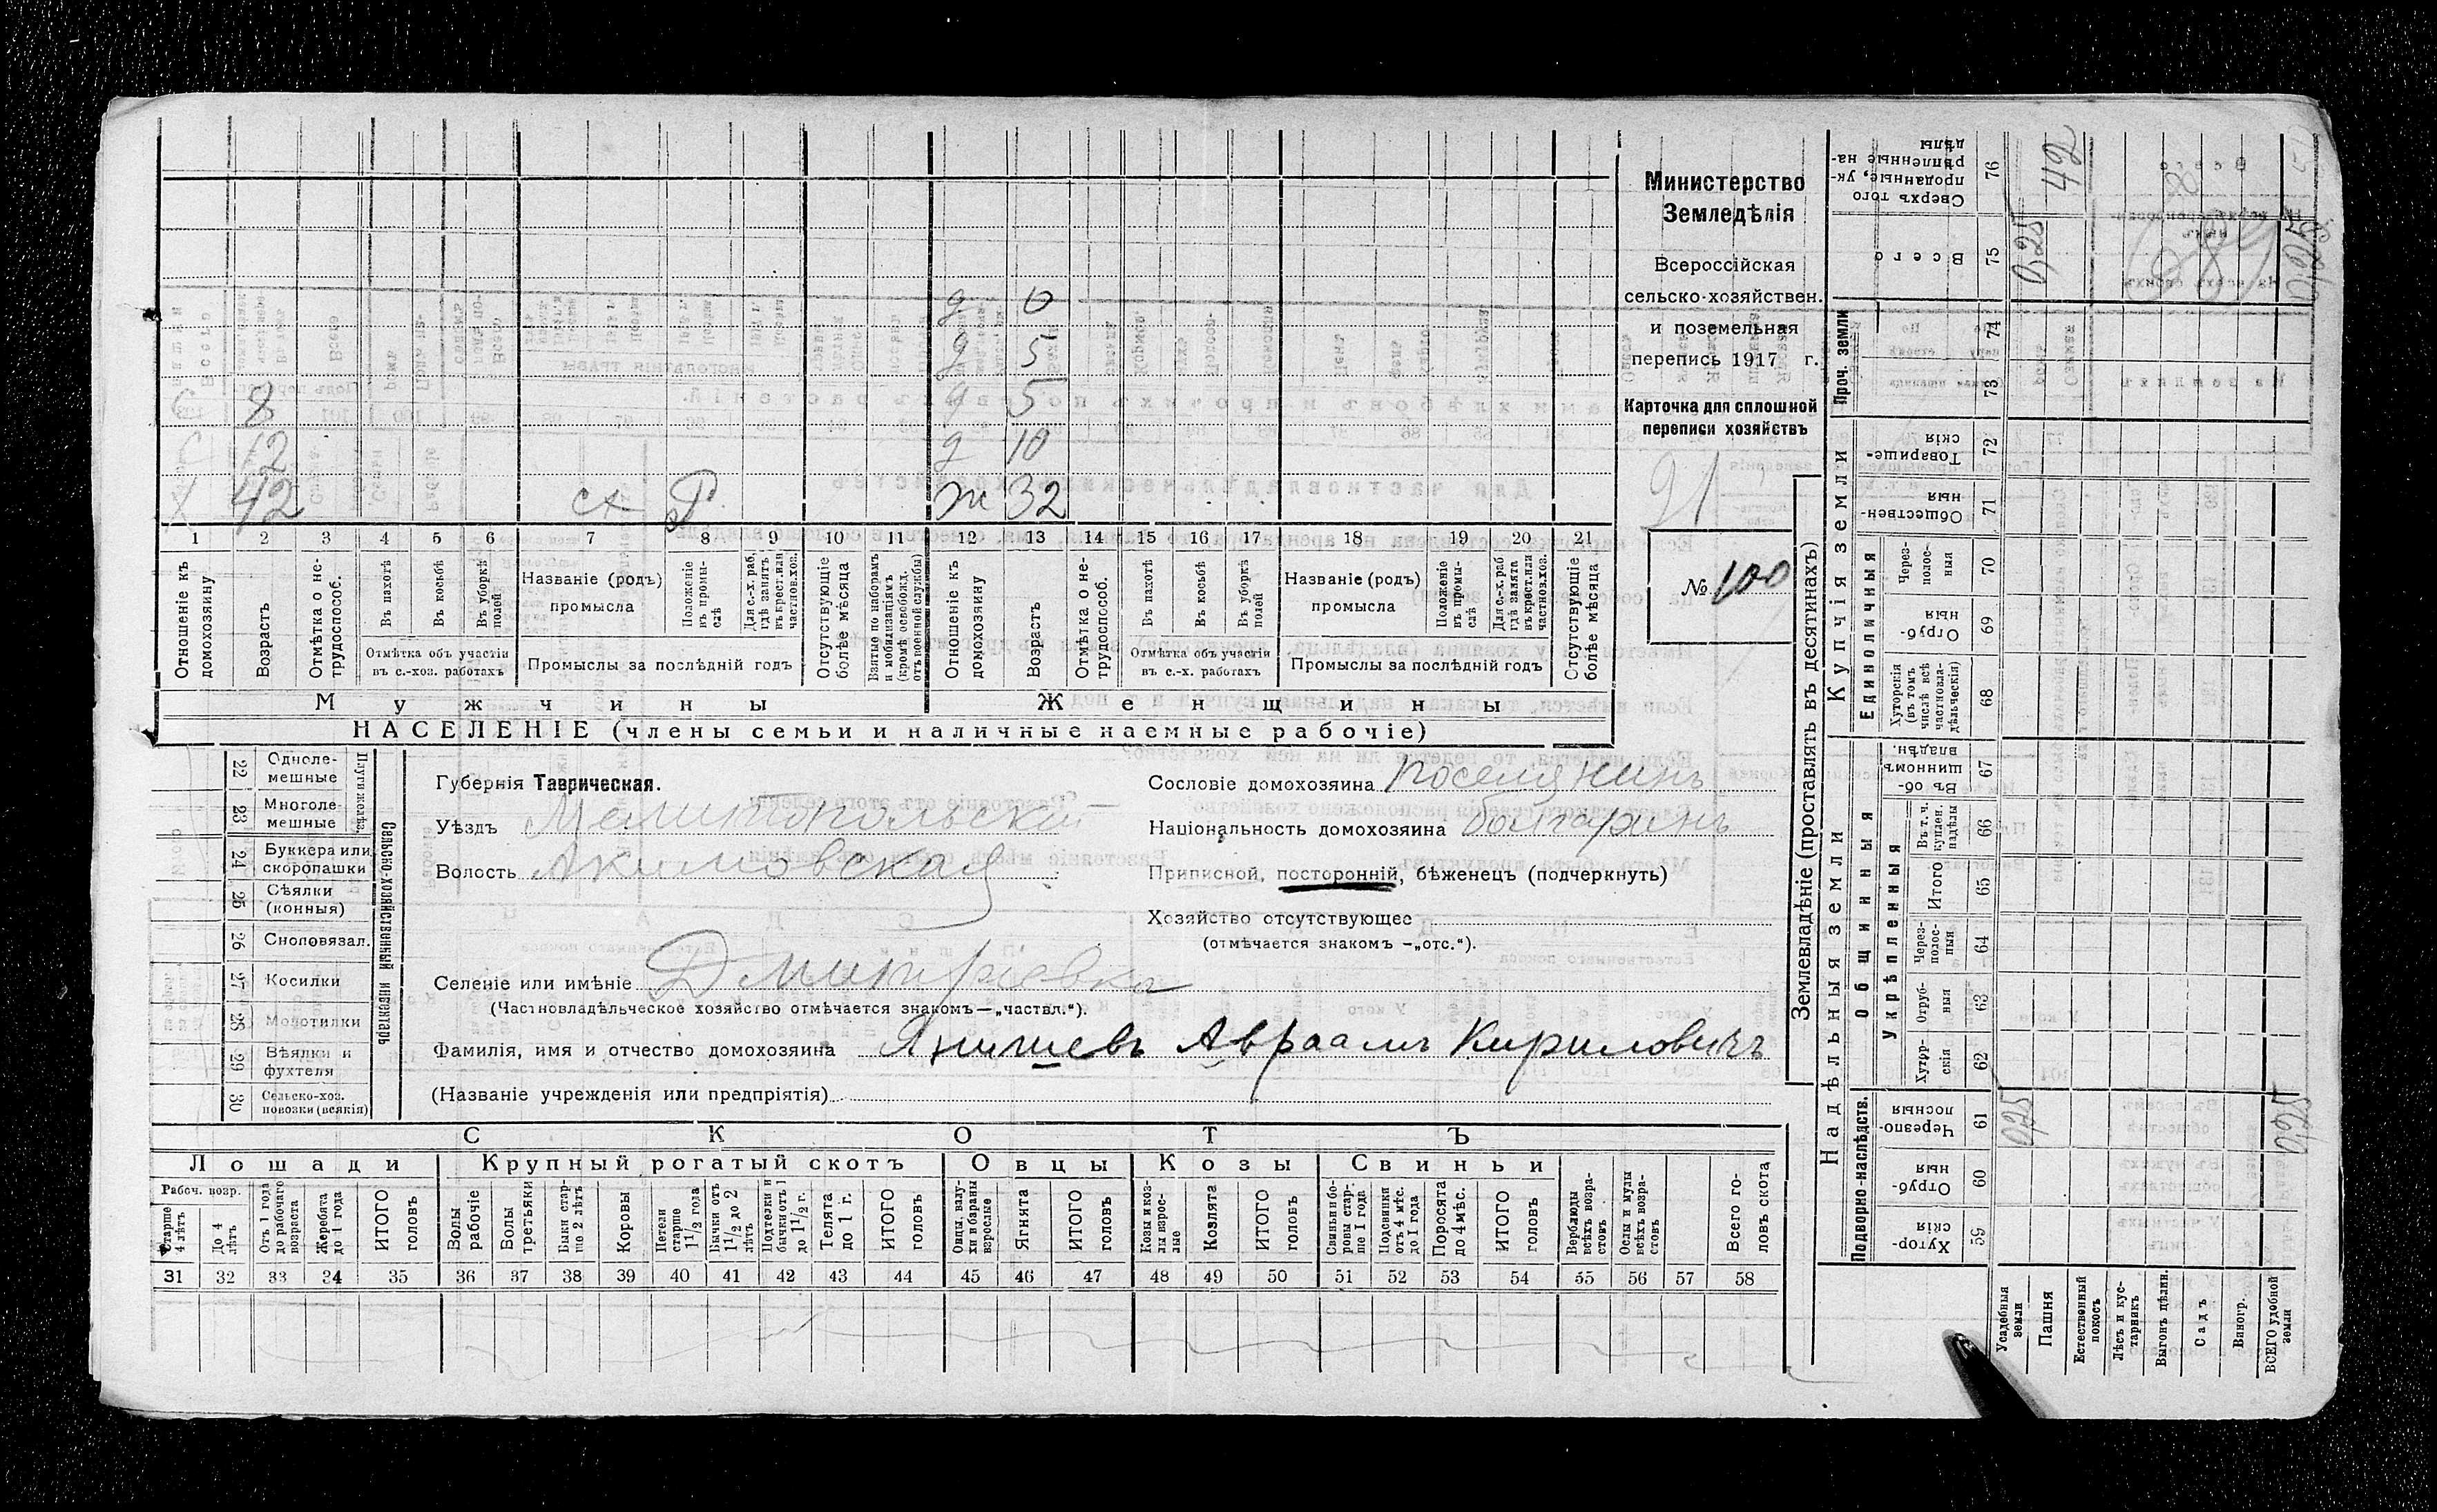 Министерство
Земледѣлія
Всероссійская
сельско-хозяйствен.
и поземельная
перепись 1917 г.
Карточка для сплошной
переписи хозяйствъ
91
№ 100
д 0
д 5
д 5
С 8 д 10
С 12
Х 42 сх Р. ж 32
1 2 3 4 5 6 7 8 9 10 11 12 13 14 15 16 17 18 19 20 21
Отношеніе къ домохозяину
Возрастъ
Отмѣтка о не-трудоспособ.
Въ пахотѣ
Въ косьбѣ
Въ уборкѣ полей
Отмѣтка объ участіи въ с.-хоз. работахъ
Названіе (родъ) промысла
Положеніе въ промы-слѣ
Для с.-х. раб. гдѣ занятъ въ крест. или частновл. хоз.
Промыслы за послѣдній годъ
Отсутствующіе болѣе мѣсяца
Взятые по наборамъ и мобилизаціямъ (кромѣ освобожд. отъ военной службы)
Отношеніе къ домохозяину
Возрастъ
Отмѣтка о не-трудоспособ.
Въ пахотѣ
Въ косьбѣ
Въ уборкѣ полей
Отмѣтка объ участіи въ с.-х. работахъ
Названіе (родъ) промысла
Положеніе въ промы-слѣ
Для с.-х. раб. гдѣ занята въ крест. или частновл. хоз.
Промыслы за послѣдній годъ
Отсутствующіе болѣе мѣсяца
Мужчины Женщины
НАСЕЛЕНІЕ (члены семьи и наличные наемные рабочіе)
Сельско-хозяйственный инвентарь
Плуги желѣз.
22 Одноле-мешные
23 Многоле-мешные
24 Буккера или скоропашки
25 Сѣялки (конныя)
26 Сноповязал.
27 Косилки
28 Молотилки
29 Вѣялки и фухтеля
30 Сельско-хоз. повозки (всякія)
Губернія Таврическая.
Уѣздъ Мелитопольскій
Волость Акимовская
Селеніе или имѣніе Дмитріевка
(Частновладѣльческое хозяйство отмѣчается знакомъ—„частвл.“).
Фамилія, имя и отчество домохозяина Янишевъ Авраамъ Кириловичъ
(Названіе учрежденія или предпріятія)
Сословіе домохозяина поселянинъ
Національность домохозяина болгаринъ
Приписной, посторонній, бѣженецъ (подчеркнуть)
Хозяйство отсутствующее
(отмѣчается знакомъ —„отс.“).
СКОТЪ
Лошади Крупный рогатый скотъ Овцы Козы Свиньи
Рабоч. возр.
Старше 4 лѣтъ
До 4 лѣтъ
Отъ 1 года до рабочаго возраста
Жеребята до 1 года
ИТОГО головъ
Волы рабочіе
Волы третьяки
Быки стар-ше 2 лѣтъ
Коровы
Нетели старше 1 1/2 года
Бычки отъ 1 1/2 до 2 лѣтъ
Подтелки и бычки отъ 1 до 1 1/2 г.
Телята до 1 г.
ИТОГО головъ
Овцы, валу-хи и бараны взрослые
Ягнята
ИТОГО головъ
Козы и коз-лы взрос-лые
Козлята
ИТОГО головъ
Свиньи и бо-ровы стар-ше 1 года
Подсвинки отъ 4 мѣс. до 1 года
Поросята до 4 мѣс.
ИТОГО головъ
Верблюды всѣхъ возра-стовъ
Ослы и мулы всѣхъ возра-стовъ
Всего го-ловъ скота
31 32 33 34 35 36 37 38 39 40 41 42 43 44 45 46 47 48 49 50 51 52 53 54 55 56 57 58
Землевладѣніе (проставлять въ десятинахъ)
Надѣльныя земли
Купчія земли
Проч. земли
Сверхъ того проданные, ук-рѣпленные на-дѣлы 76 42
Всего 75 0,25 0,25
74
73
Товарище-скія 72
Обществен-ныя 71
Единоличныя
Через-полос-ныя 70
Отруб-ныя 69
Хуторскія (въ томъ числѣ всѣ частновла-дѣльческія) 68
Общинныя
Въ об-щинномъ владѣн. 67
Укрѣпленныя
Въ т. ч. куплен. надѣлы 66
Итого 65
Через-полос-ныя 64
Отруб-ныя 63
Хутор-скія 62
Подворно-наслѣдств.
Черезпо-лосныя 61 0,25 0,25
Отруб-ныя 60
Хутор-скія 59
Усадебныя земли
Пашня
Естественный покосъ
Лѣсъ и кус-тарникъ
Выгонъ цѣлин.
Садъ
Виногр.
ВСЕГО удобной земли